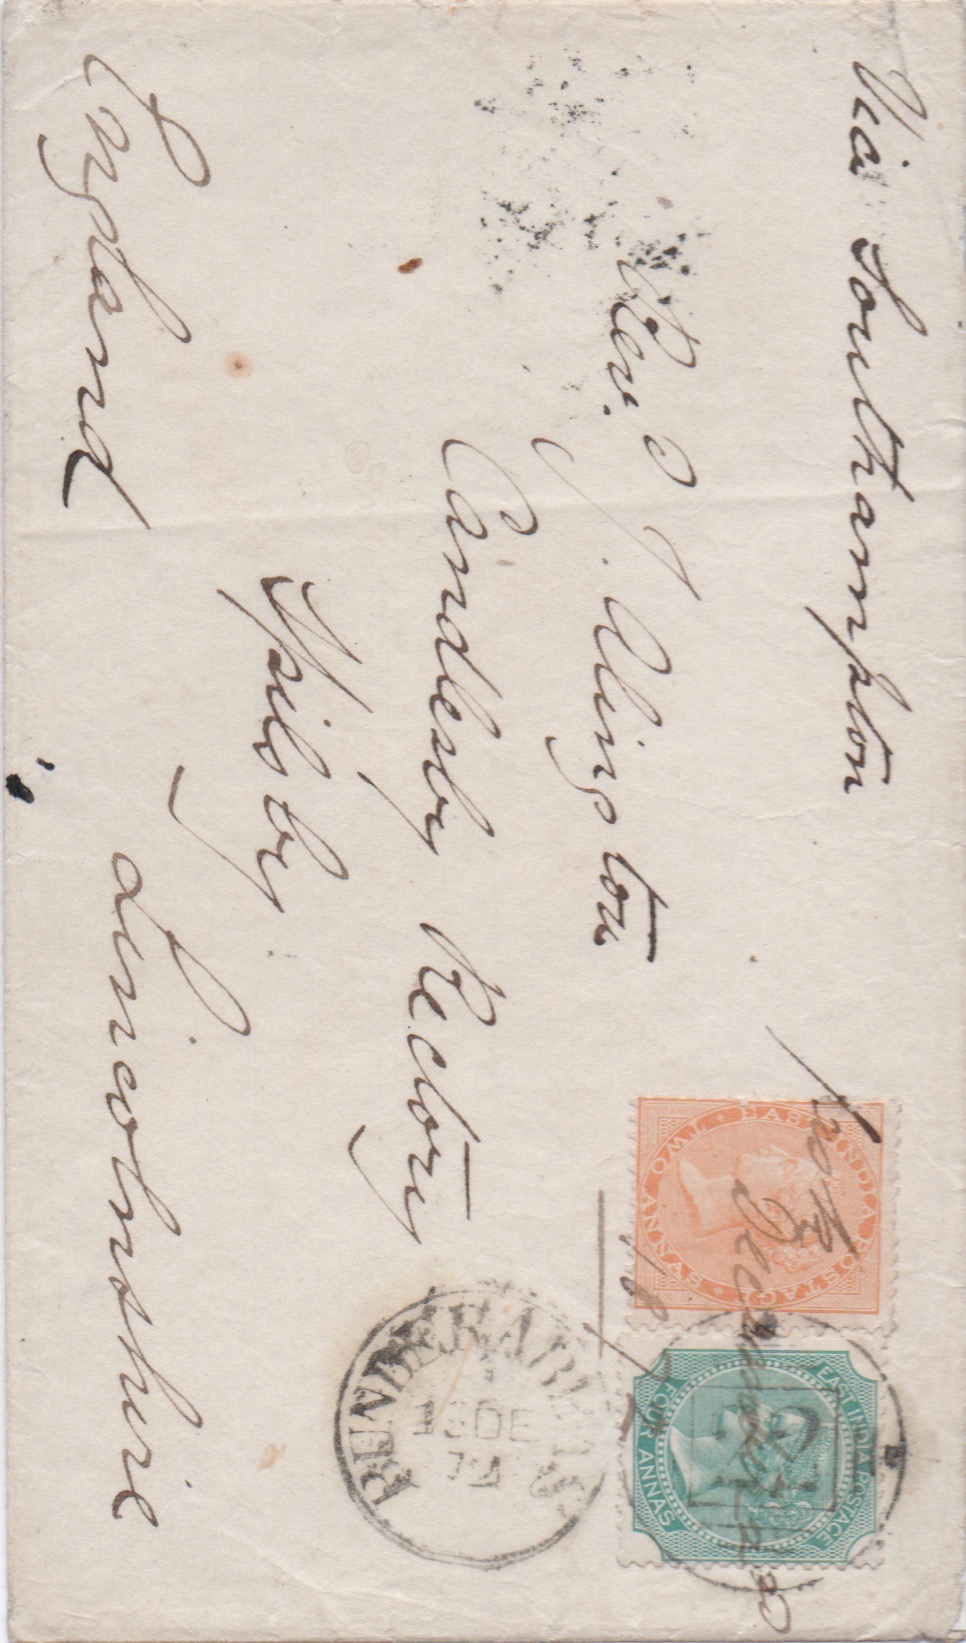 Via Southampton
Rev. J. Alington
Candlesby Rectory
Spilsby
Lincolnshire
England
December
EAST INDIA POSTAGE
TWO ANNAS
EAST INDIA POSTAGE
FOUR ANNAS
BUNDER ABBAS
DE